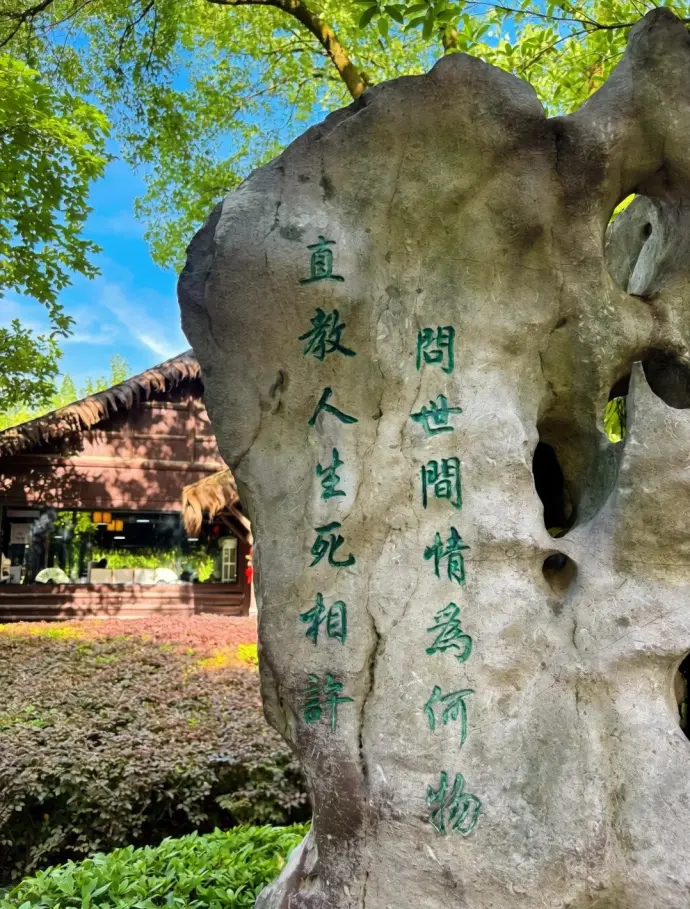 問世間情爲何物
直教人生死相許